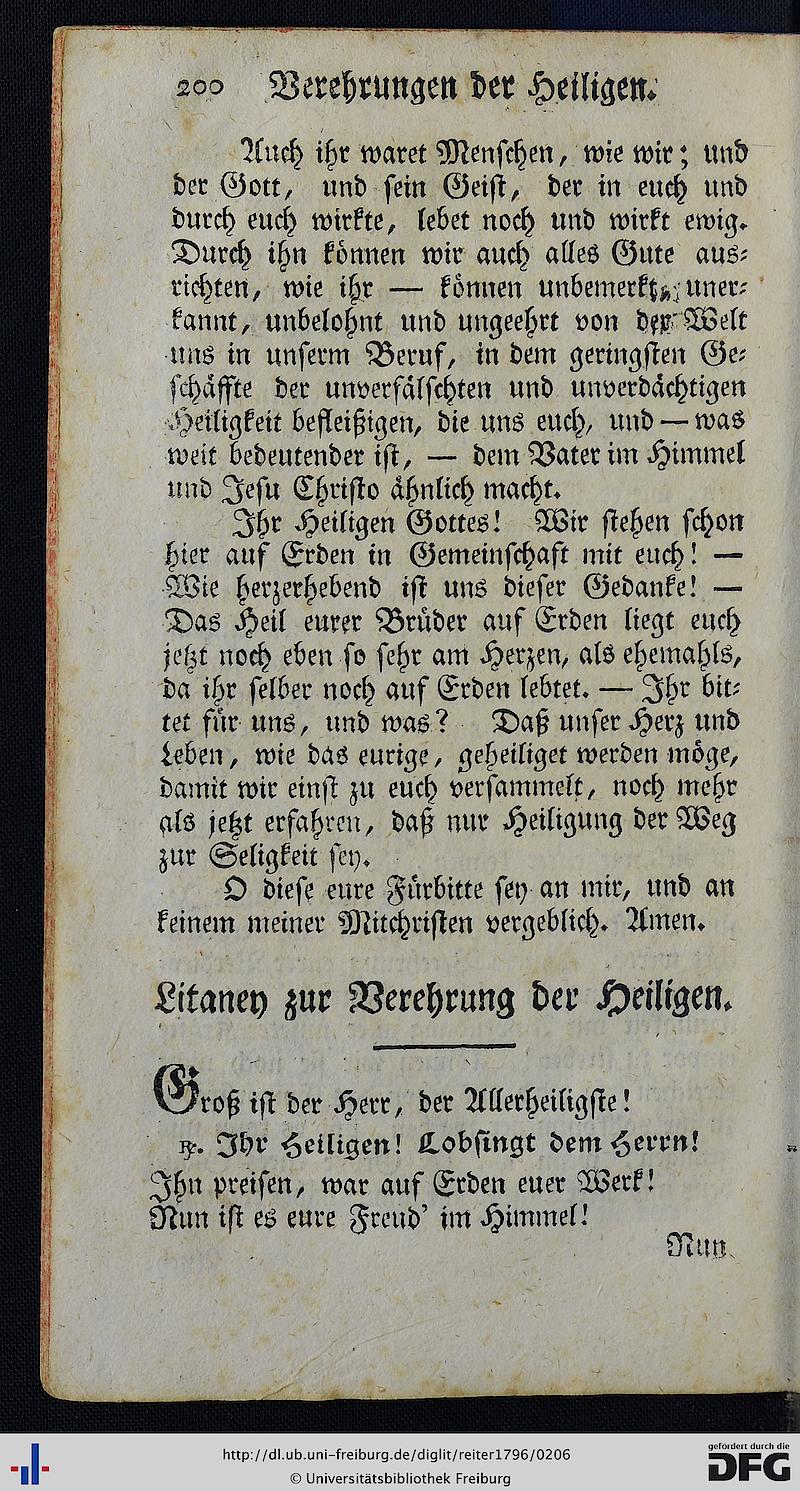 200 Verehrungen der Heiligen.
Auch ihr waret Menschen, wie wir; und
der Gott, und sein Geist, der in euch und
durch euch wirkte, lebet noch und wirkt ewig.
Durch ihn können wir auch alles Gute aus-
richten, wie ihr — können unbemerkt, uner-
kannt, unbelohnt und ungeehrt von der Welt
uns in unserm Beruf, in dem geringsten Ge-
schäffte der unverfälschten und unverdächtigen
Heiligkeit befleißigen, die uns euch, und — was
weit bedeutender ist, — dem Vater im Himmel
und Jesu Christo ähnlich macht.
Ihr Heiligen Gottes! Wir stehen schon
hier auf Erden in Gemeinschaft mit euch! —
Wie herzerhebend ist uns dieser Gedanke! —
Das Heil eurer Brüder auf Erden liegt euch
jetzt noch eben so sehr am Herzen, als ehemahls,
da ihr selber noch auf Erden lebtet. — Ihr bit-
tet für uns, und was? Daß unser Herz und
Leben, wie das eurige, geheiliget werden möge,
damit wir einst zu euch versammelt, noch mehr
als jetzt erfahren, daß nur Heiligung der Weg
zur Seligkeit sey.
O diese eure Fürbitte sey an mir, und an
keinem meiner Mitchristen vergeblich. Amen.
Litaney zur Verehrung der Heiligen.
Groß ist der Herr, der Allerheiligste!
℟. Ihr Heiligen! Lobsingt dem Herrn!
Ihn preisen, war auf Erden euer Werk!
Nun ist es eure Freud' im Himmel!
Nun
http://dl.ub.uni-freiburg.de/diglit/reiter1796/0206
© Universitätsbibliothek Freiburg
gefördert durch die
DFG